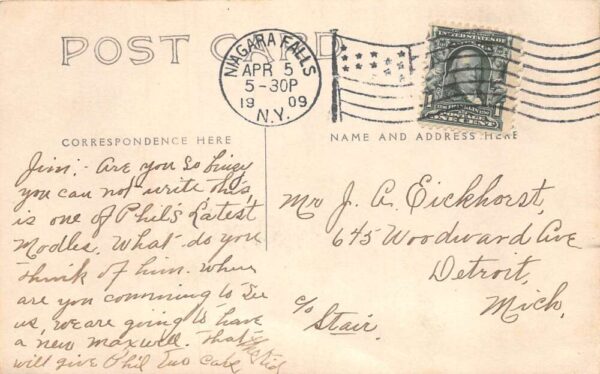 POST CARD
NIAGARA FALLS
APR 5
5-30P
1909
N.Y.
UNITED STATES OF
POSTAGE
ONE CENT
CORRESPONDENCE HERE
NAME AND ADDRESS HERE
Jim;- Are you So buzy
you can not write this,
is one of Phil's Latest
Modles. What do you
think of him. When
are you comming to See
us, we are going to have
a new Maxwell. That
will give Phil Two cars
Mr J. A. Eickhorst,
645 Woodward Ave
Detroit,
Mich.
c/o
Stair.